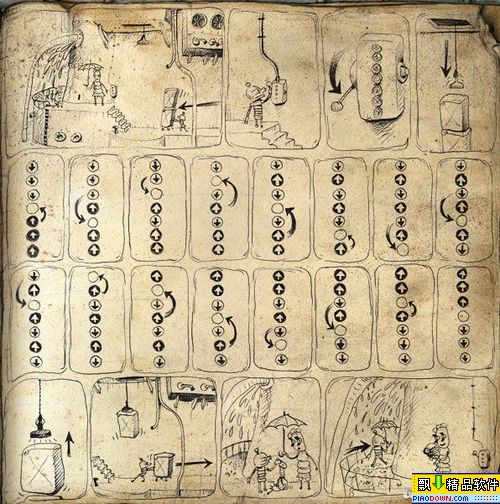 飘精品软件
PIAODOWN.COM